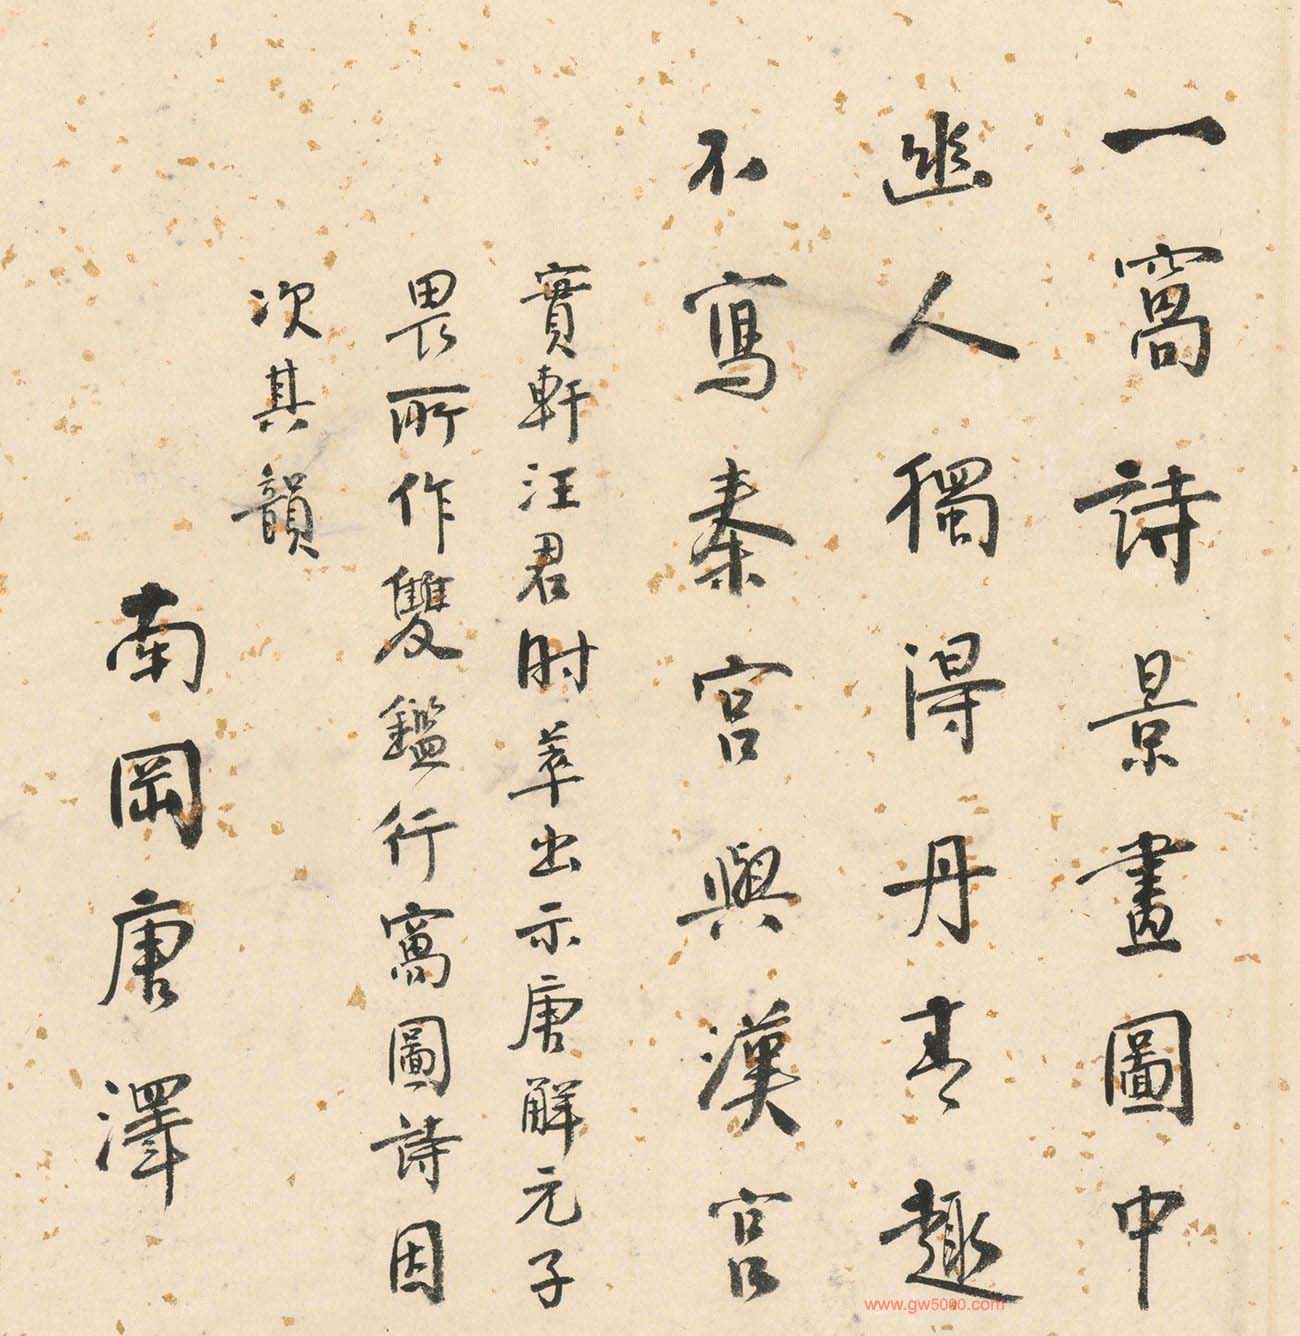 一窩詩景畫圖中
幽人獨得丹青趣
不寫秦宮與漢宮
實軒汪君時萃出示唐解元子
畏所作雙鑑行窩圖詩因
次其韻
南岡唐澤
www.gw5000.com